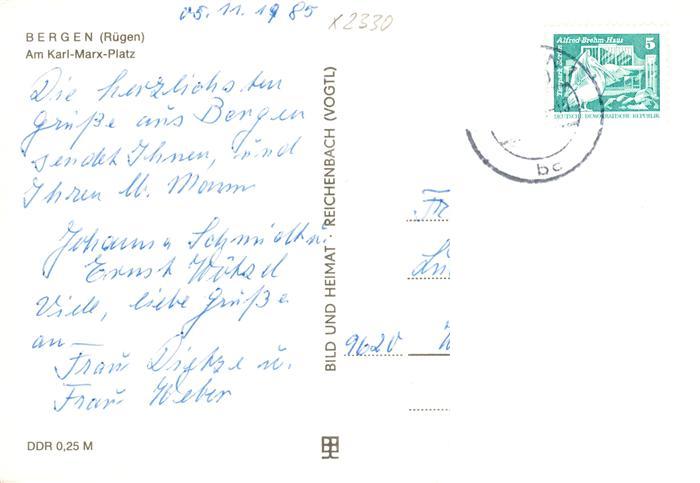 05.11.1985
X2330
BERGEN (Rügen)
Am Karl-Marx-Platz
Die herzlichsten
Grüße aus Bergen
sendet Ihnen, und
Ihren lb. Mann
Johanna
Ernst
Viele, liebe Grüße
an —
Frau Dietze u.
Frau Weber
DDR 0,25 M
BILD UND HEIMAT · REICHENBACH (VOGTL)
Alfred-Brehm-Haus
5
DEUTSCHE DEMOKRATISCHE REPUBLIK
bc
Fr
9620